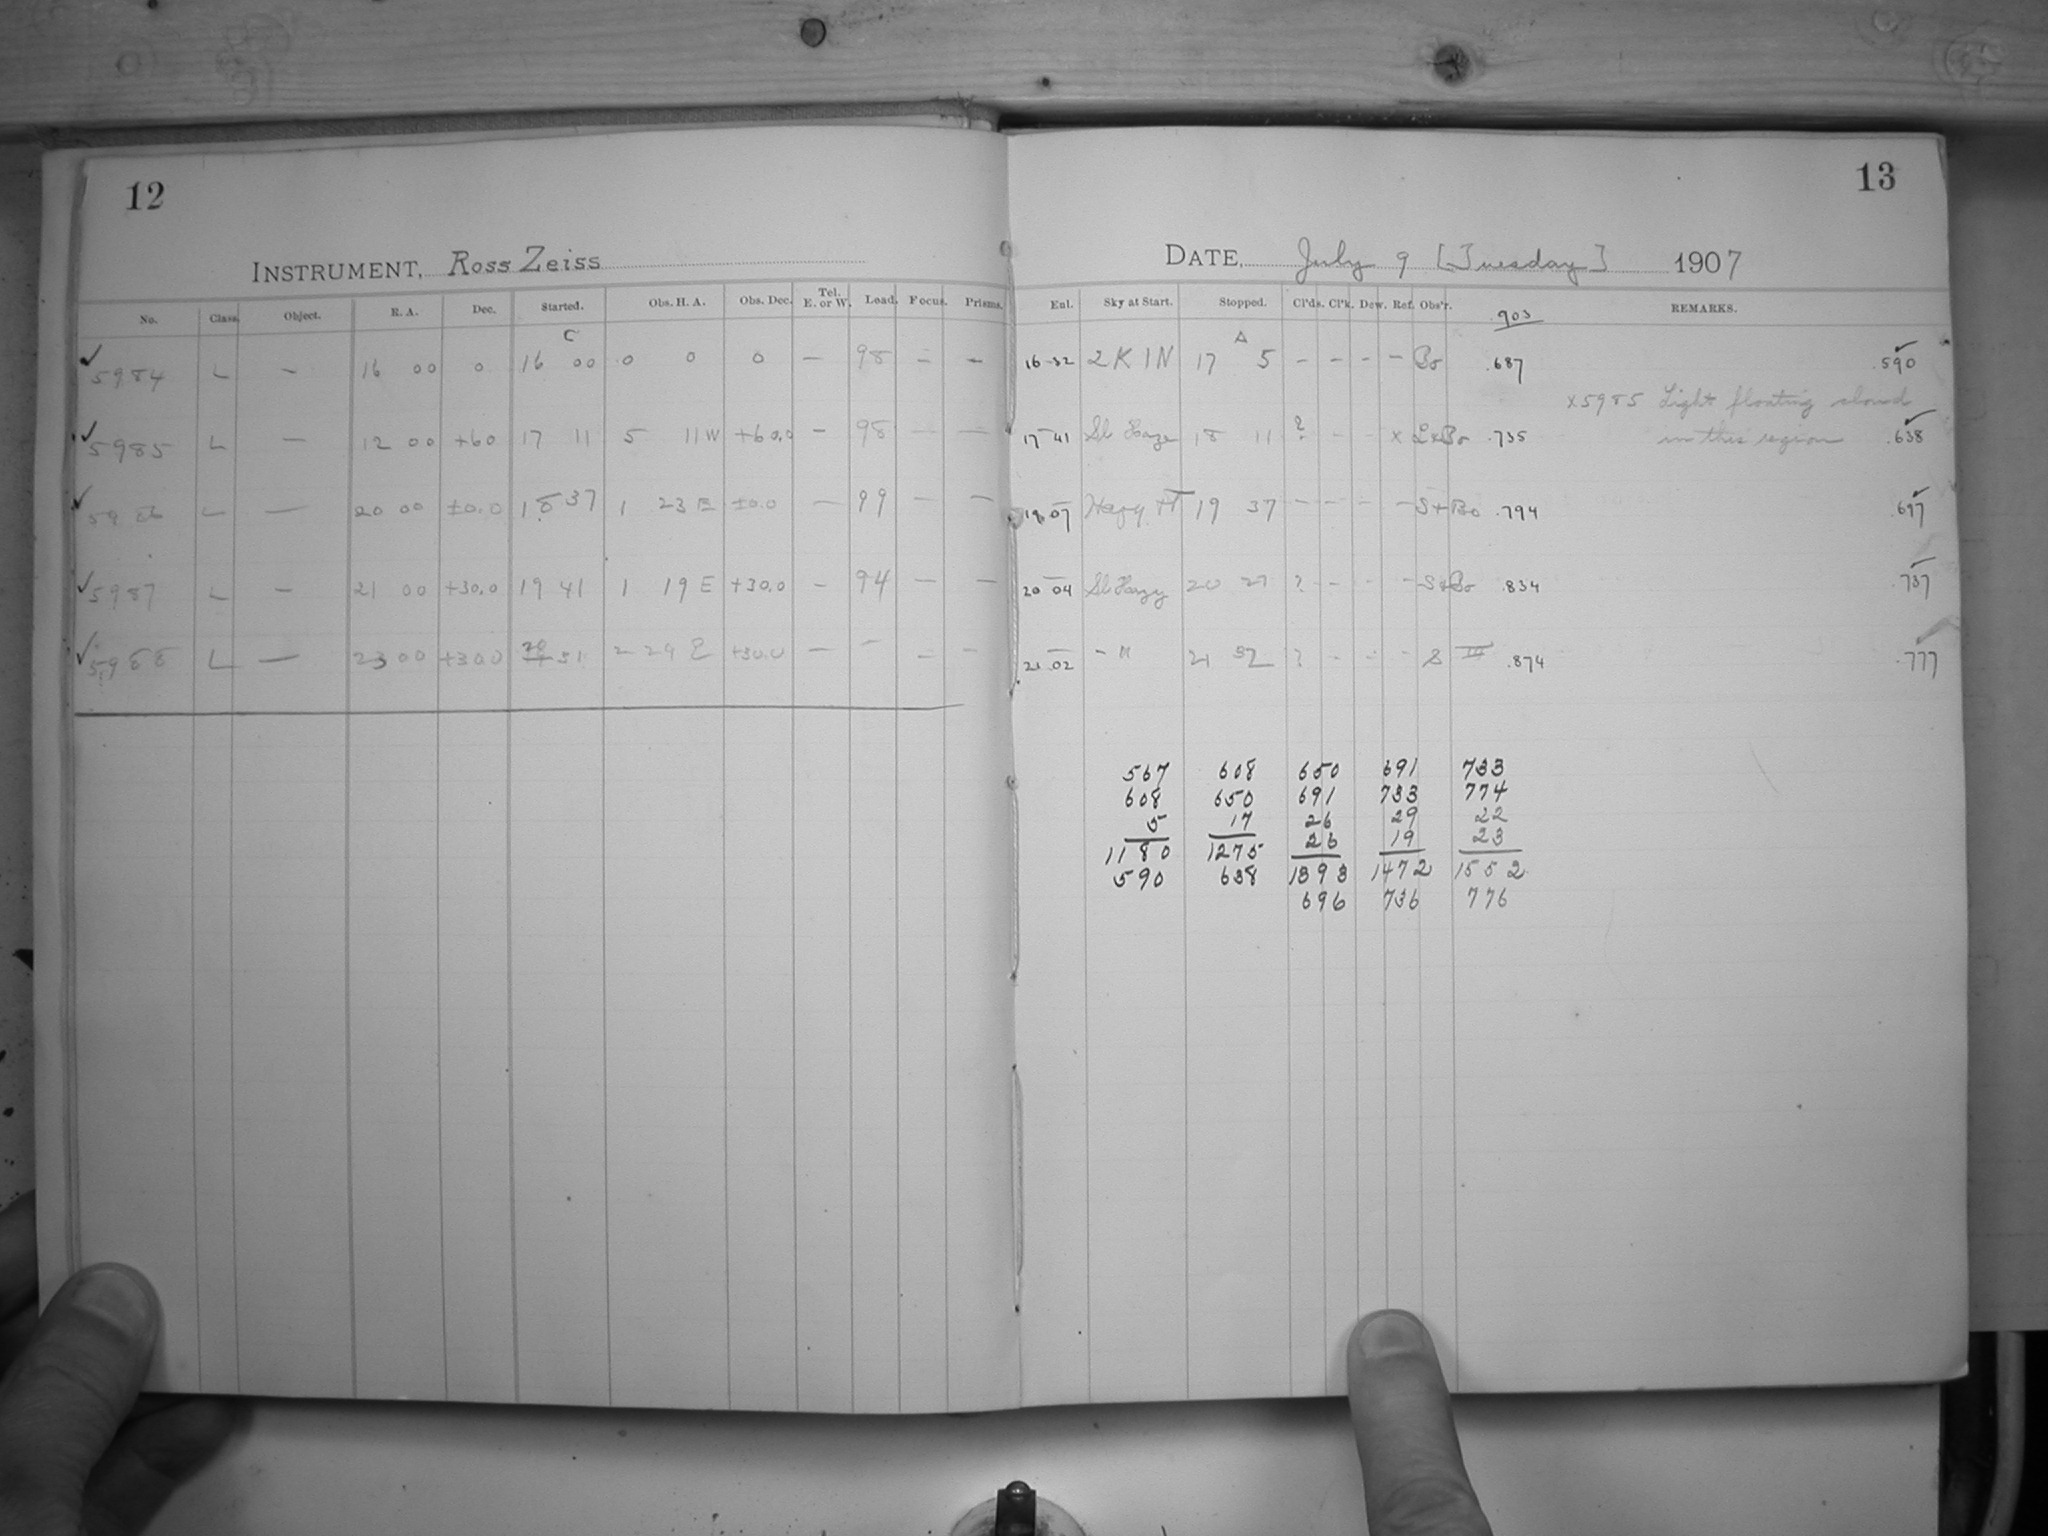 12
INSTRUMENT, Ross Zeiss
No. Class. Object. R. A. Dec. Started. Obs. H. A. Obs. Dec. Tel. E. or W. Load. Focus. Prisms.
C
✓ 5984 L — 16 00 0 16 00 0 0 0 — 98 — —
✓ 5985 L — 12 00 +60 17 11 5 11 W +60.0 — 98 — —
✓ 5986 L — 20 00 ±0.0 18 37 1 23 E ±0.0 — 99 — —
✓ 5987 L — 21 00 +30.0 19 41 1 19 E +30.0 — 94 — —
✓ 5988 L — 23 00 +30.0 20 31 2 29 E +30.0 — — — —
13
DATE, July 9 [Tuesday] 1907
Enl. Sky at Start. Stopped. Cl'ds. Cl'k. Dew. Ref. Obs'r. REMARKS.
.903
A
16 32 2 K 1 N 17 5 — — — — Bo .687 .590 ✓
x 5985 Light floating cloud
17 41 Sl Haze 18 11 ? - - x L+Bo .735 in this region .638 ✓
19.07 Hazy H 19 37 — — — — S+Bo .794 .697 ✓
20 04 Sl Hazy 20 27 ? - - - S+Bo .834 .737 ✓
21.02 - " 21 32 ? - - - S III .874 .777 ✓
567 608 650 691 733
608 650 691 733 774
5 17 26 29 22
1180 1275 26 19 23
590 638 1393 1472 1552
696 736 776